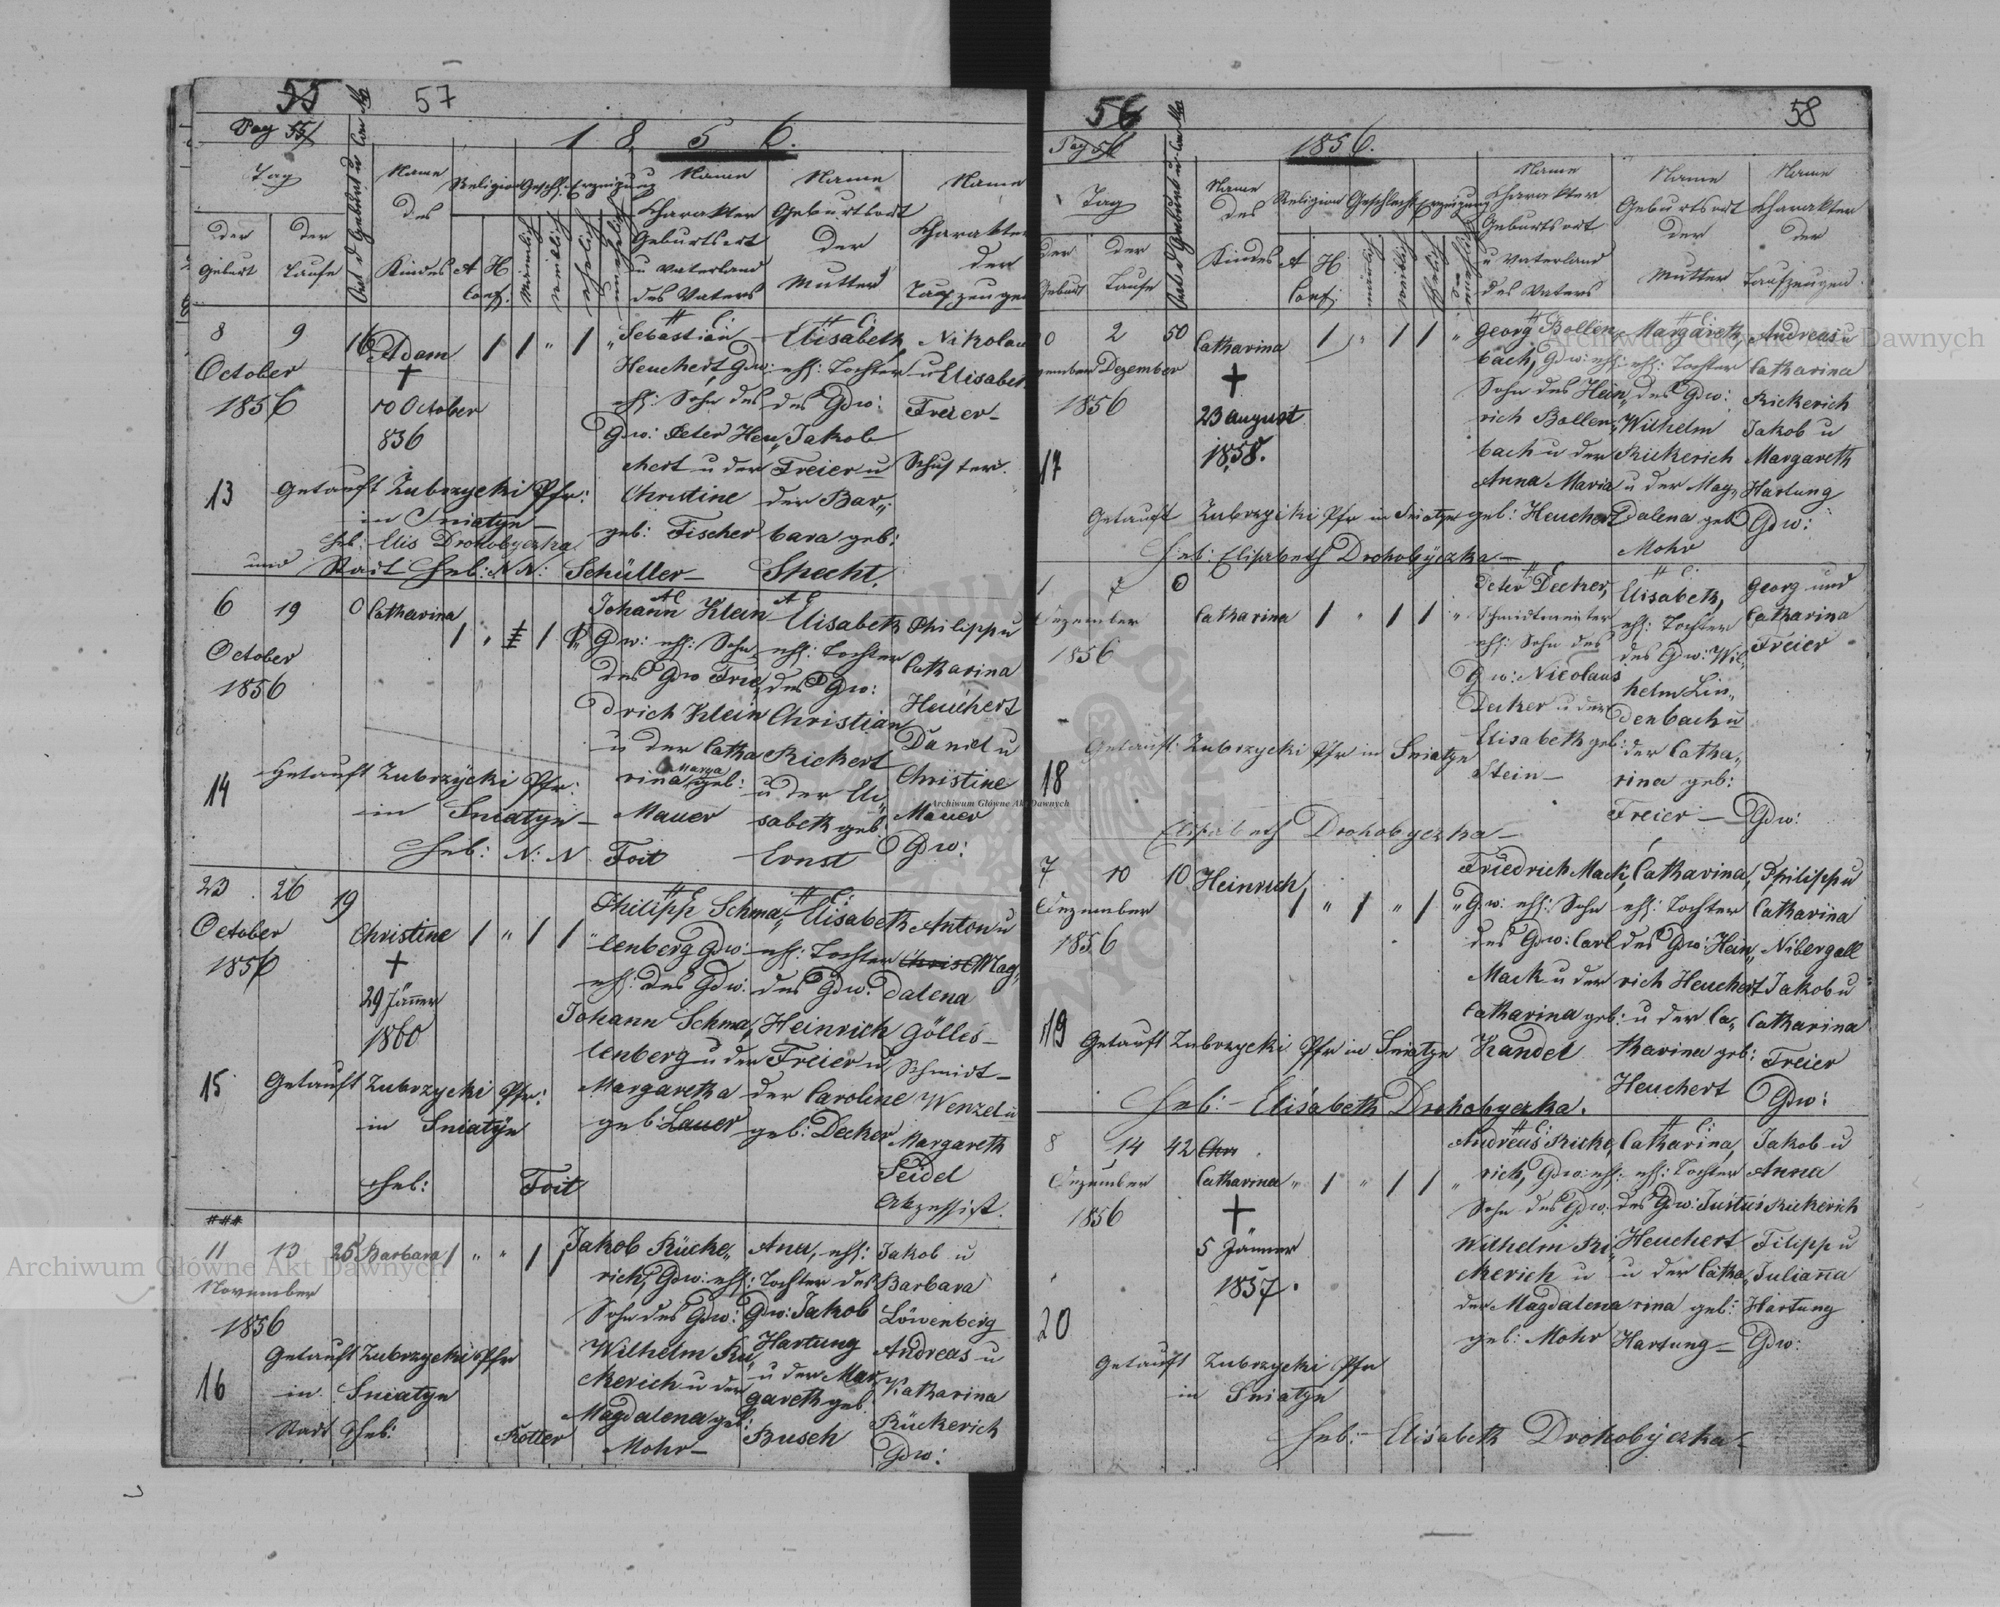 55 57
Pag 55
1 8 5 6.
Tag
der Geburt
der Taufe
Name des Kindes
Religion
A H
Conf:
Geschl.
männlich
weiblich
Erzeugung
ehelich
unehelich
Name
Charakter
Geburtsort
u Vaterland
des Vaters
Name
Geburtsort
der
Mutter
Name
Charakter
der
Taufzeugen
8 9 16 Adam
October
1856
10 October
856
Sebastian
Heuchert, Gdw:
ehl: Sohn des
Gdw: Peter Heu„
chert u der
Christine
geb: Fischer
Elisabeth
ehl: Tochter
des Gdw:
Jakob
Freier u
der Bar„
bara geb:
Specht.
Nikolau
u Elisabet
Freier
Schuster.
13 Getauft Zubrzycki Pfr:
in Sniatyn
Heb: Elis Drohobyczka
und Stadt Heb: N N: Schüller
6 19 0 Catharina
October
1856
Johann Klein
Gdw: ehl: Sohn
des Gdw Frie„
drich Klein
u der Catha
rina Marga geb:
Mauer
Elisabeth
ehl: Tochter
des Gdw:
Christian
Rickert
u der Eli„
sabeth geb:
Ernst
Philipp u
Catharina
Heuchert
Daniel u
Christine
Mauer
Gdw:
14 Getauft Zubrzycki Pfr:
in Sniatyn
Heb: N: N Foit
23 26 19
October
1856
Christine
29 Jänner
1860
Philipp Schma„
lenberg Gdw:
ehl: des Gdw:
Johann Schma„
lenberg u der
Margaretha
geb: Lauer
Elisabeth
ehl: Tochter
des Gdw:
Heinrich
Freier u
der Caroline
geb: Decker
Anton u
Christ Mag„
dalena
Gölles
Schmidt
Wenzel u
Margareth
Seidel
Akzessist.
15 Getauft Zubrzycki Pfr:
in Sniatyn
Heb: Foit
11 13 25 Barbara
November
1856
Jakob Rücke„
rich, Gdw: ehl:
Sohn des Gdw:
Wilhelm Rü„
ckerich u der
Magdalena geb:
Mohr
Anna, ehl:
Tochter des
Gdw: Jakob
Hartung
u der Mar„
gareth geb.
Busch
Jakob u
Barbara
Löwenberg
Andreas u
Katharina
Rückerich
Gdw:
16 Getauft Zubrzycki Pfr
in Sniatyn
Stadt Heb:
56 58
Pag 56
1856.
Tag
der Geburt
der Taufe
Name
des
Kindes
Religion
A H
Conf:
Geschlecht
männlich
weiblich
Erzeugung
Name
Charakter
Geburtsort
u Vaterland
des Vaters
Name
Geburtsort
der
Mutter
Name
Charakter
der
Taufzeugen
2 50 Catharina
Dezember
1856
23 August
1858.
Georg Bollen„
bach, Gdw: ehl:
Sohn des Hein„
rich Bollen„
bach u der
Anna Maria
geb: Heuchert
Margareth,
ehl: Tochter
des Gdw:
Wilhelm
Rickerich
u der Mag„
dalena geb
Mohr
Andreas u
Catharina
Rickerich
Jakob u
Margareth
Hartung
Gdw:
17
Getauft Zubrzycki Pfr in Sniatyn
Heb: Elisabeth Drohobyczka
7 0
Dezember
1856
Catharina
Peter Decker,
Schmidtmeister
ehl: Sohn des
Gdw: Nicolaus
Decker u der
Elisabeth geb:
Stein
Elisabeth,
ehl: Tochter
des Gdw: Wil„
helm Lin„
denbach u
der Catha„
rina geb:
Freier
Georg und
Catharina
Freier
Gdw:
18
Getauft Zubrzycki Pfr in Sniatyn
Elisabeth Drohobyczka
7 10 10 Heinrich
Dezember
1856
Friedrich Mack,
Gdw: ehl: Sohn
des Gdw: Carl
Mack u der
Catharina geb:
Kandel
Catharina,
ehl: Tochter
des Gdw: Hein„
rich Heuchert
u der Ca„
tharina geb:
Heuchert
Philipp u
Catharina
Nibergall
Jakob u
Catharina
Freier
Gdw:
19 Getauft Zubrzycki Pfr in Sniatyn
Heb: Elisabeth Drohobyczka.
8 14 42 Chri
Dezember
1856
Catharina
5 Jänner
1857.
Andreas Ricke„
rich, Gdw: ehl:
Sohn des Gdw:
Wilhelm Ri„
ckerich u
der Magdalena
geb: Mohr
Catharina,
ehl: Tochter
des Gdw: Justus
Heuchert
u der Catha„
rina geb:
Hartung
Jakob u
Anna
Rickerich
Filipp u
Julianna
Hartung
Gdw:
20
Getauft Zubrzycki Pfr
in Sniatyn
Heb: Elisabeth Drohobyczka
Archiwum Główne Akt Dawnych